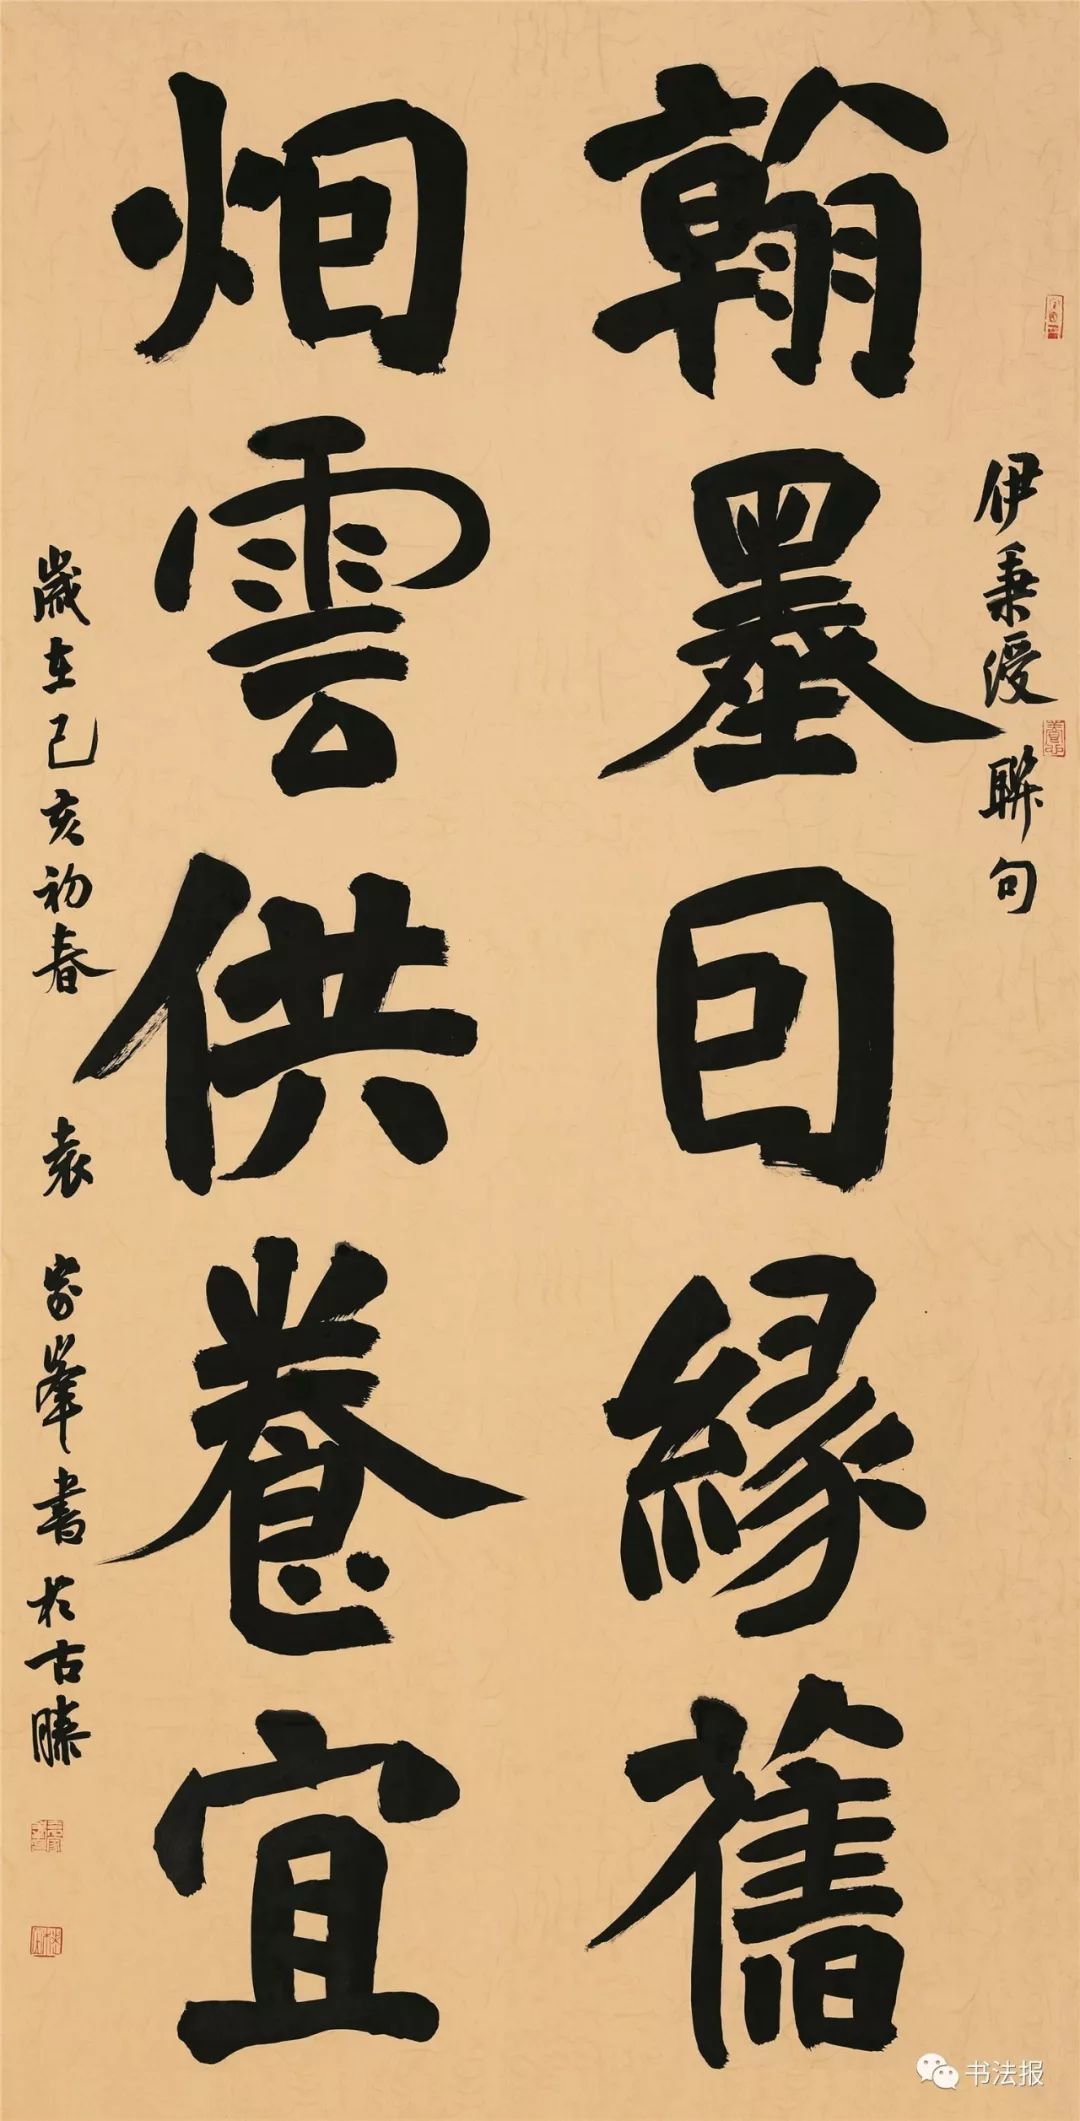 伊秉绶聯句
翰墨因緣舊
烟雲供養宜
歲在己亥初春 袁家峯書於古滕
书法报